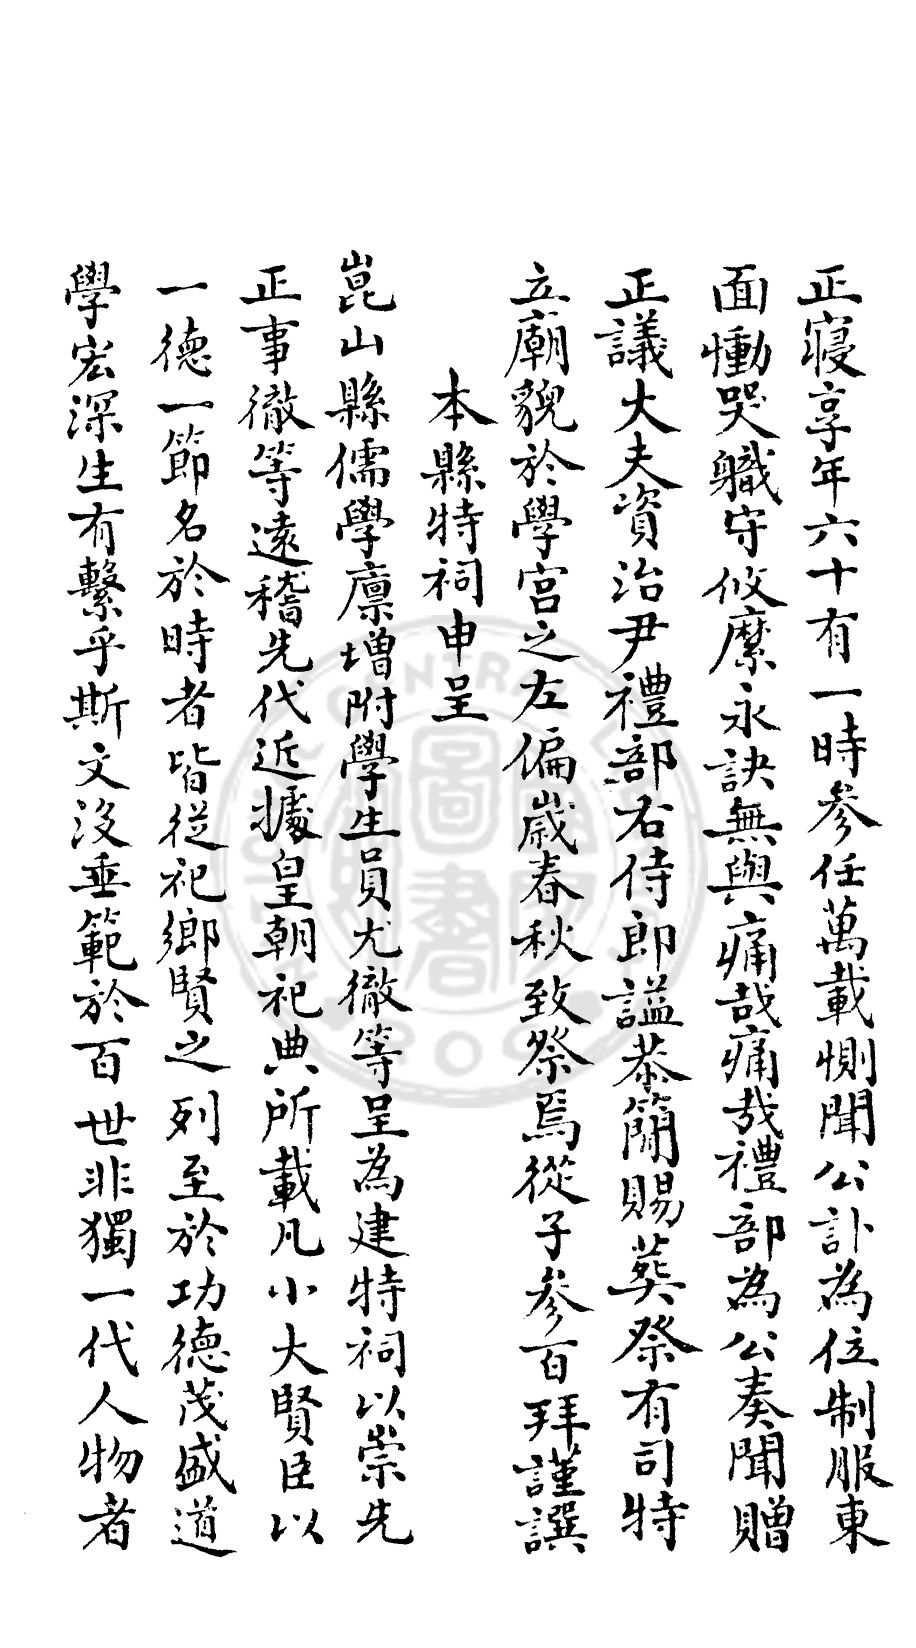 正寢享年六十有一時參任萬載惻聞公訃為位制服東
面慟哭職守攸縻永訣無與痛哉痛哉禮部為公奏聞贈
正議大夫資治尹禮部右侍郎謚恭簡賜葬祭有司特
立廟貌於學宮之左偏歲春秋致祭焉從子參百拜謹譔
本縣特祠申呈
崑山縣儒學廩增附學生員尤徹等呈為建特祠以崇先
正事徹等遠稽先代近據皇朝祀典所載凡小大賢臣以
一德一節名於時者皆從祀鄉賢之列至於功德茂盛道
學宏深生有繫乎斯文沒垂範於百世非獨一代人物者